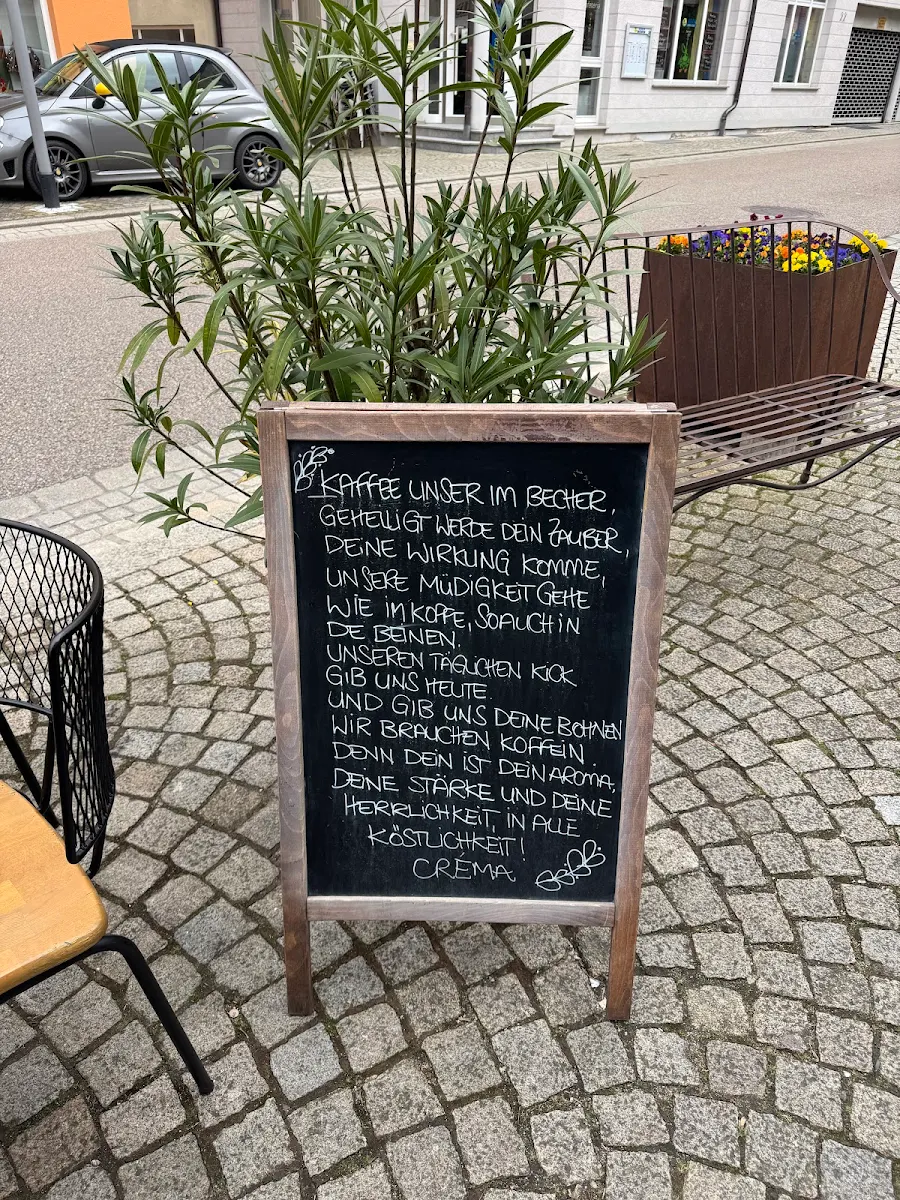 KAFFEE UNSER IM BECHER,
GEHEILIGT WERDE DEIN ZAUBER,
DEINE WIRKUNG KOMME,
UNSERE MÜDIGKEIT GEHE
WIE IM KOPFE, SO AUCH IN
DE BEINEN.
UNSEREN TÄGLICHEN KICK
GIB UNS HEUTE.
UND GIB UNS DEINE BOHNEN
WIR BRAUCHEN KOFFEIN.
DENN DEIN IST DEIN AROMA,
DEINE STÄRKE UND DEINE
HERRLICHKEIT, IN ALLE
KÖSTLICHKEIT!
CREMA